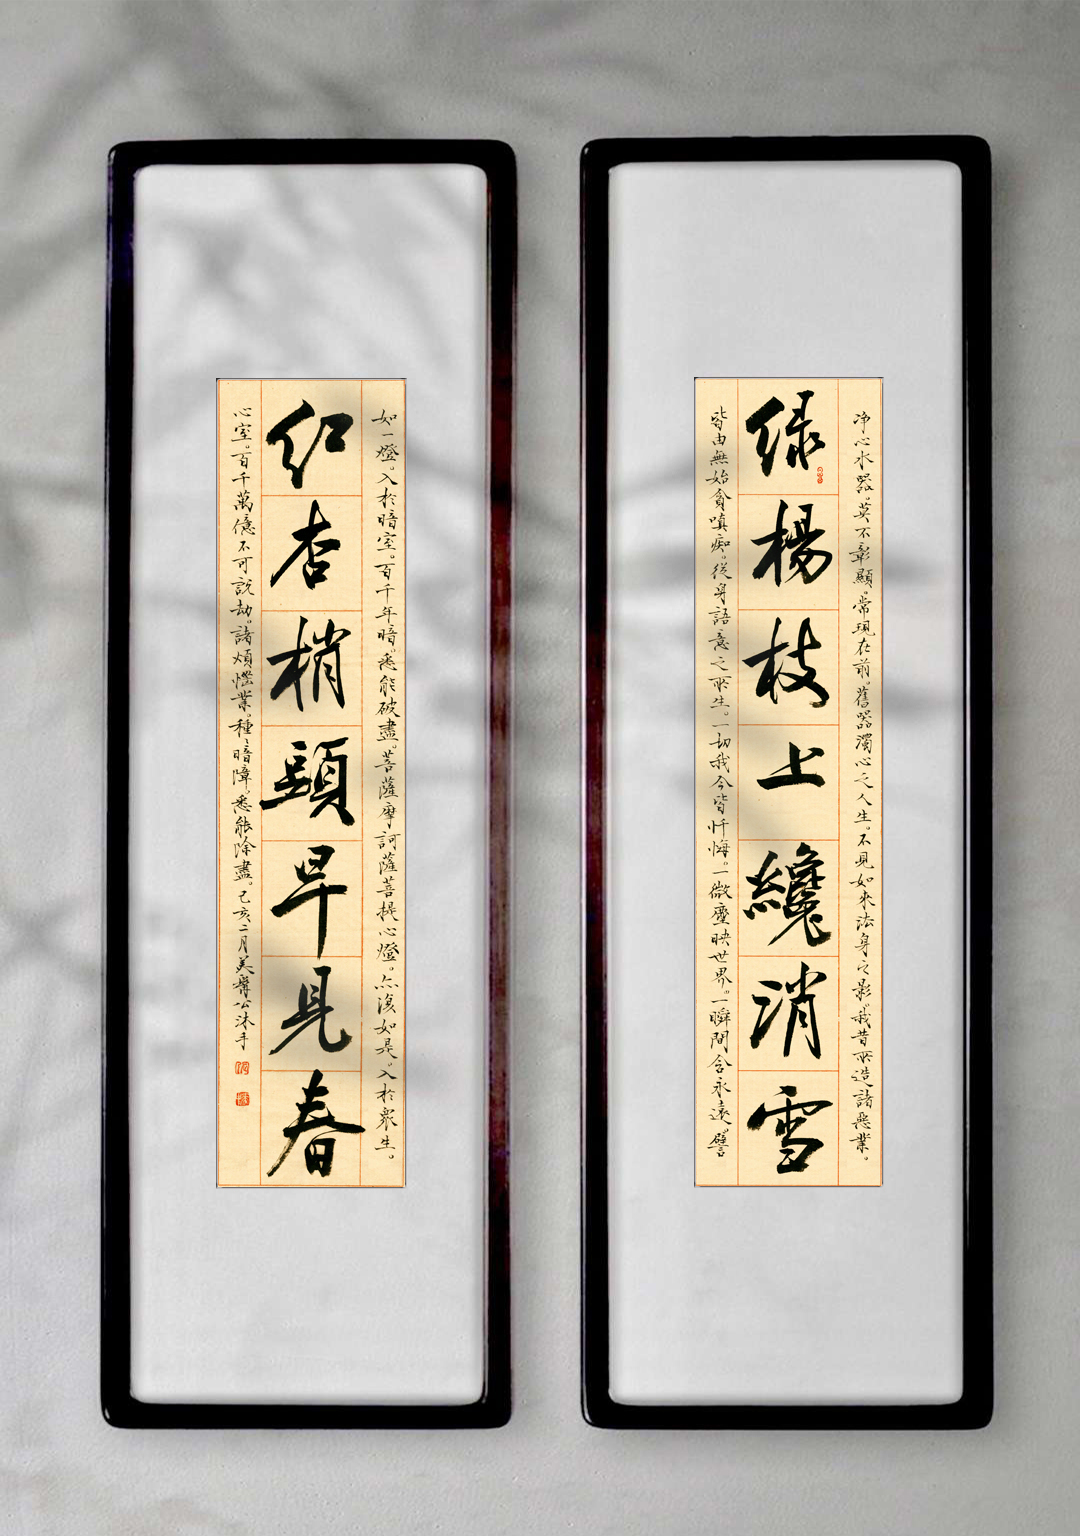 净心水器。莫不彰顯。常現在前。舊器濁心之人生。不見如來法身之影。我昔所造諸惡業。
绿楊枝上纔消雪
皆由無始貪嗔痴。從身語意之所生。一切我今皆忏悔。一微塵映世界。一瞬間含永遠。譬
如一燈。入於暗室。百千年暗。悉能破盡。菩薩摩訶薩菩提心燈。亦復如是。入於衆生。
红杏梢頭早見春
心室。百千萬億不可說劫。諸煩惱業。種暗障。悉能除盡。己亥二月美髯公沐手